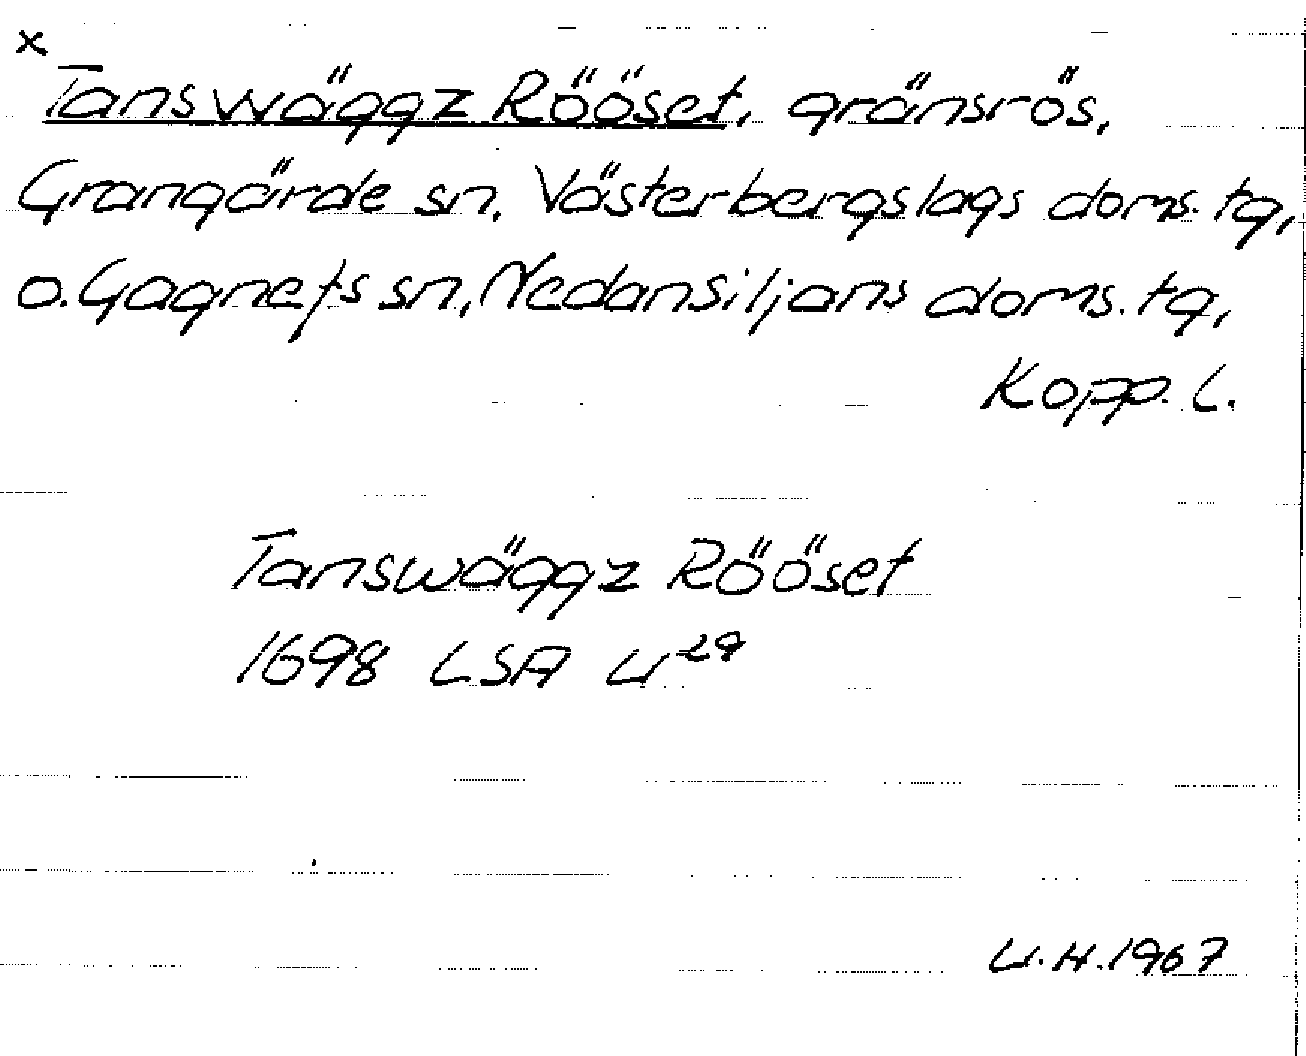 x
Tanswäggz Rööset, gränsrös,
Grangärde sn, Västerbergslags doms.tg,
o. Gagnefs sn, Nedansiljans doms.tg,
Kopp. l.
Tanswäggz Rööset
1698 LSA U²⁹
U.H. 1967